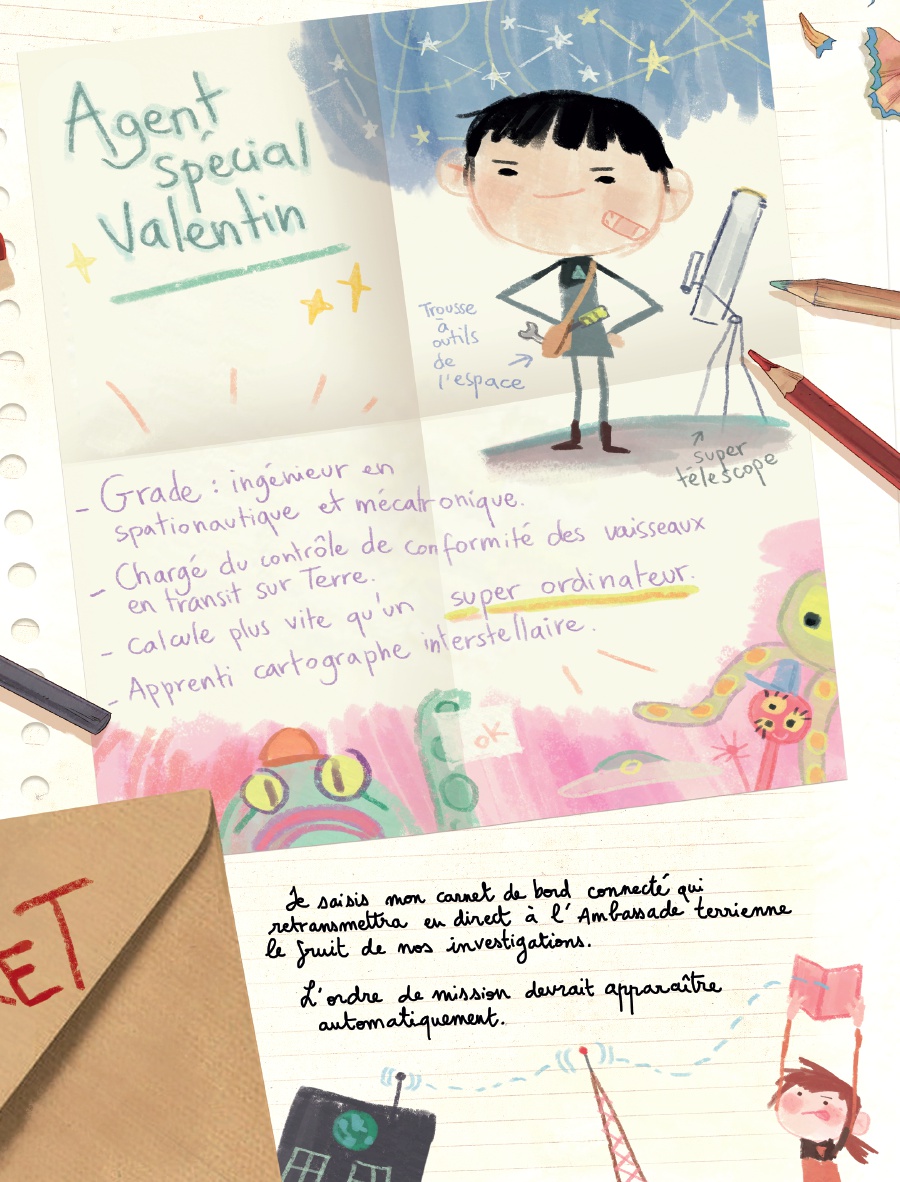 Agent
spécial
Valentin
Trousse
à
outils
de
l'espace
super
télescope
- Grade : ingénieur en
spationautique et mécatronique.
- Chargé du contrôle de conformité des vaisseaux
en transit sur Terre.
- Calcule plus vite qu'un super ordinateur.
- Apprenti cartographe interstellaire.
OK
ET
Je saisis mon carnet de bord connecté qui
retransmettra en direct à l'Ambassade terrienne
le fruit de nos investigations.
L'ordre de mission devrait apparaître
automatiquement.